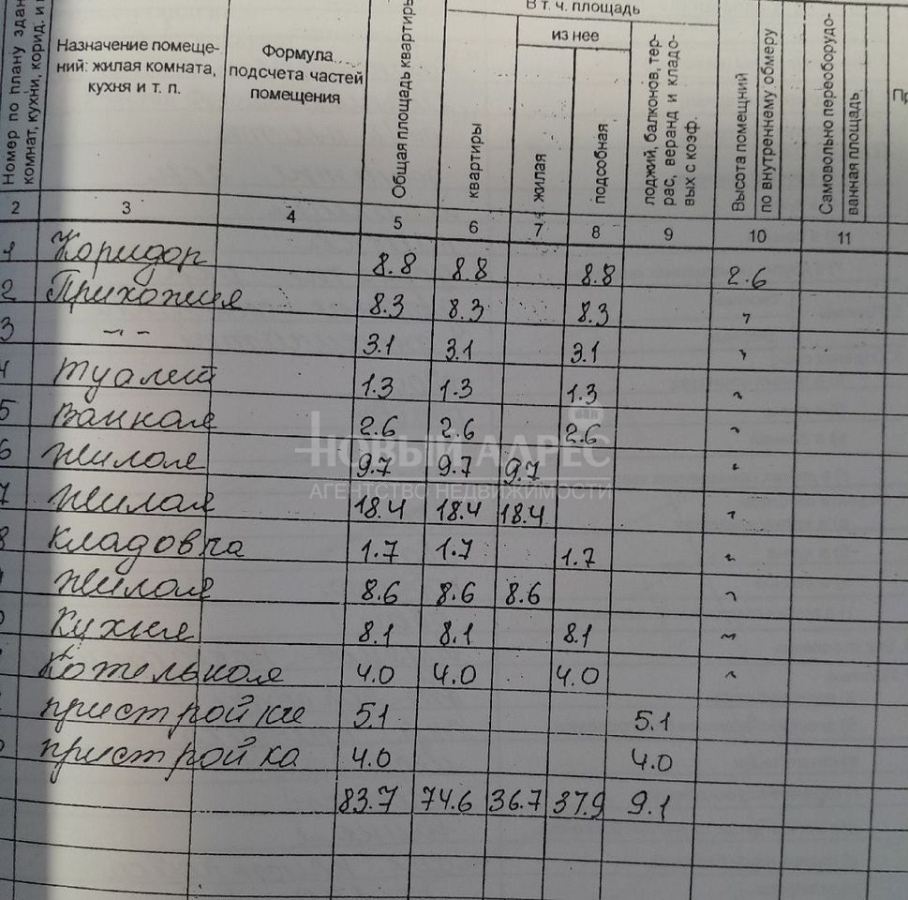 Номер по плану здан
комнат, кухни, корид. и
Назначение помеще-
ний: жилая комната,
кухня и т. п.
Формула
подсчета частей
помещения
Общая площадь квартиры
В т. ч. площадь
квартиры
из нее
жилая
подсобная
лоджий, балконов, тер-
рас, веранд и кладо-
вых с коэф.
Высота помещний
по внутреннему обмеру
Самовольно переоборудо-
ванная площадь
2 3 4 5 6 7 8 9 10 11
1 Коридор 8.8 8.8 8.8 2.6
2 Прихожая 8.3 8.3 8.3 "
3 -"- 3.1 3.1 3.1 "
4 туалет 1.3 1.3 1.3 "
5 Ванная 2.6 2.6 2.6 "
6 Жилая 9.7 9.7 9.7 "
7 Жилая 18.4 18.4 18.4 "
8 Кладовка 1.7 1.7 1.7 "
Жилая 8.6 8.6 8.6 "
Кухня 8.1 8.1 8.1 "
Котельная 4.0 4.0 4.0 "
пристройка 5.1 5.1
пристройка 4.0 4.0
83.7 74.6 36.7 37.9 9.1
НОВЫЙ АДРЕС
АГЕНТСТВО НЕДВИЖИМОСТИ